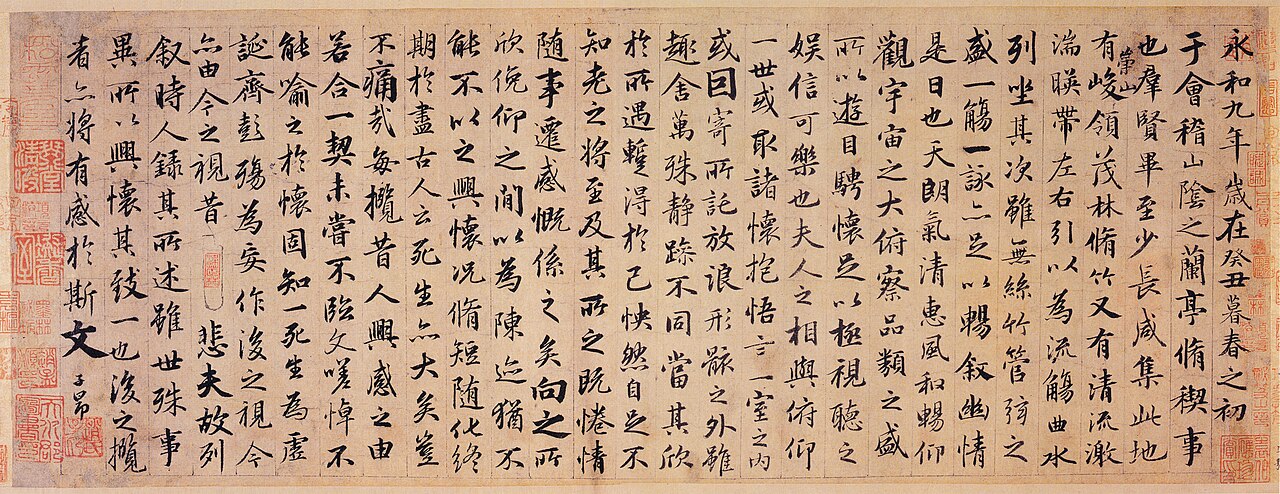 永和九年歲在癸丑暮春之初
于會稽山陰之蘭亭脩稧事
也羣賢畢至少長咸集此地
有崇山峻領茂林脩竹又有清流激
湍暎帶左右引以為流觴曲水
列坐其次雖無絲竹管弦之
盛一觴一詠亦足以暢叙幽情
是日也天朗氣清惠風和暢仰
觀宇宙之大俯察品類之盛
所以遊目騁懷足以極視聽之
娛信可樂也夫人之相與俯仰
一世或取諸懷抱悟言一室之內
或因寄所託放浪形骸之外雖
趣舍萬殊静躁不同當其欣
於所遇蹔得於己怏然自足不
知老之將至及其所之既惓情
随事遷感慨係之矣向之所
欣俛仰之間以為陳迹猶不
能不以之興懷况脩短随化終
期於盡古人云死生亦大矣豈
不痛哉每攬昔人興感之由
若合一契未嘗不臨文嗟悼不
能喻之於懷固知一死生為虛
誕齊彭殤為妄作後之視今
亦由今之視昔 悲夫故列
叙時人錄其所述雖世殊事
異所以興懷其致一也後之攬
者亦將有感於斯文 子昂